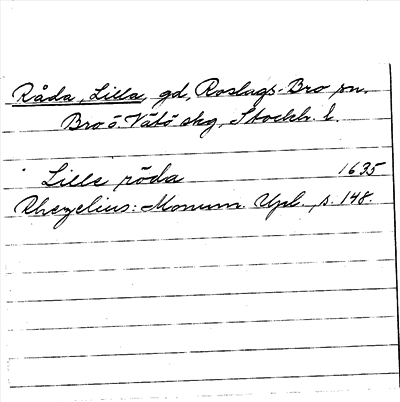 Råda, Lilla, gd, Roslags-Bro sn,
Bro o. Vätö skg, Stockh. l.
Lille röda 1635
Rhezelius: Monum. Upl. s. 148.